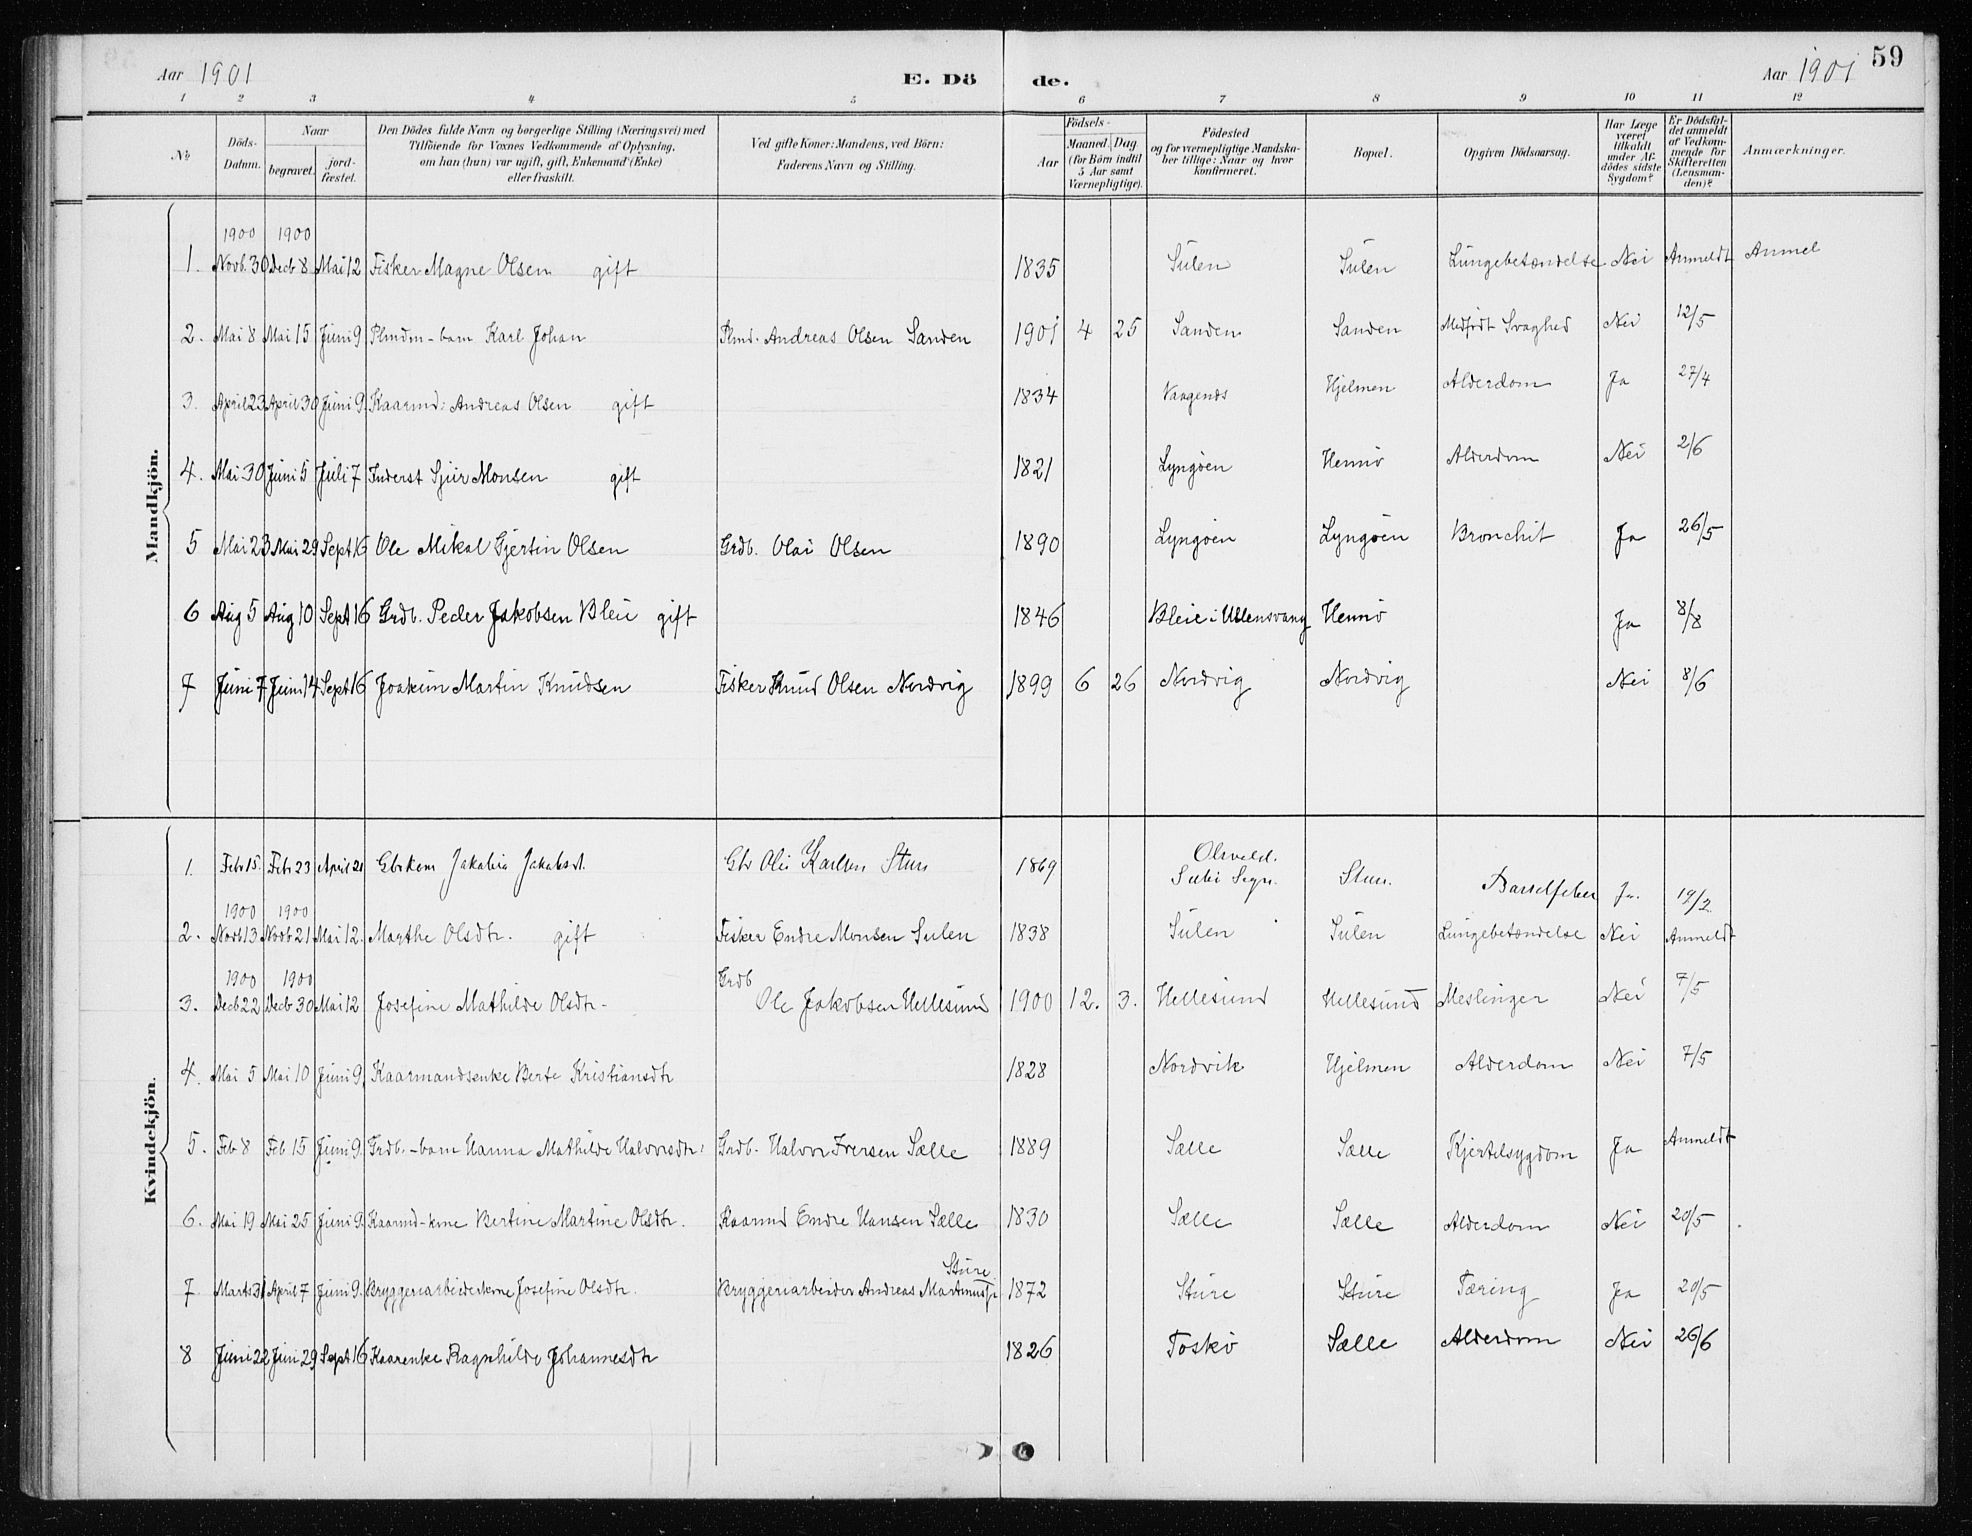 59
Aar 1901 E. Dö de. Aar 1901
1 2 3 4 5 6 7 8 9 10 11 12
No
Döds-Datum.
Naar
begravet.
jord-fæstet.
Den Dödes fulde Navn og borgerlige Stilling (Næringsvei) med
Tilföiende for Voxnes Vedkommende af Oplysning,
om han (hun) var ugift, gift, Enkemand (Enke)
eller fraskilt.
Ved gifte Koner: Mandens, ved Börn:
Faderens Navn og Stilling.
Födsels-
Aar
Maaned. Dag
(for Börn indtil
5 Aar samt
Værnepligtige).
Födested
og for værnepligtige Mandska-
ber tillige: Naar og hvor
konfirmeret.
Bopæl.
Opgiven Dödsaarsag.
Har Læge
været
tilkaldt
under Af-
dödes sidste
Sygdom?
Er Dödsfal-
det anmeldt
af Vedkom-
mende for
Skifteretten
(Lensman-
den)?
Anmærkninger.
Mandkjön.
1900 1900
1. Novb. 30 Decb 8 Mai 12 Fisker Magne Olsen gift 1835 Sulen Sulen Lungebetændelse Nei Anmeldt Anmel
2. Mai 8 Mai 15 Juni 9 Plmdm-barn Karl Johan Plmd. Andreas Olsen Sanden 1901 4 25 Sanden Sanden Medfødt Svaghed Nei 12/5
3. April 23 April 30 Juni 9. Kaarmd: Andreas Olsen gift 1834 Vaagenes Hjelmen Alderdom Ja 27/4
4. Mai 30 Juni 5 Juli 7 Inderst Sjur Monsen gift 1821 Lyngøen Hernø Alderdom Nei 2/6
5 Mai 23 Mai 29 Sept 16 Ole Mikal Gjertin Olsen Grdb. Olai Olsen 1890 Lyngøen Lyngøen Bronchit Ja 26/5
6 Aug 5 Aug 10 Sept 16 Grdb. Peder Jakobsen Bleie gift 1846 Bleie i Ullensvang Hernø Ja 8/8
7 Juni 7 Juni 14 Sept 16 Joakim Martin Knudsen Fisker Knud Olsen Nordvig 1899 6 26 Nordvig Nordvig Nei 8/6
Kvindekjön.
1. Febr 15. Febr 23 April 21 Gbrkone Jakobia Jakobsd. Gbr Ole Karlsen Sture 1869 Sture. Barselfeber Ja. 19/2
1900 1900
2. Novb 13 Novb 21 Mai 12. Marthe Olsdtr. gift Fisker Endre Monsen Sulen 1838 Sulen Sulen Lungebetændelse Nei Anmeldt
1900 1900 Grdb
3. Decb 22 Decb 30 Mai 12 Josefine Mathilde Olsdtr- Ole Jakobsen Hellesund 1900 12. 3. Hellesund Hellesund Meslinger Nei 7/5
4. Mai 5 Mai 10 Juni 9. Kaarmandsenke Berte Kristiansdtr 1828 Nordvik Hjelmen Alderdom Nei 7/5
5. Feb 8 Feb 15 Juni 9. Grdb.-barn Hanna Mathilde Halvorsdtr Grdb. Halvor Iversen Sælle 1889 Sælle Sælle Kjertelsygdom Ja Anmeldt
6. Mai 19 Mai 25 Juni 9. Kaarmd-kone Bertine Martine Olsdtr. Kaarmd Endre Hansen Sælle 1830 Sælle Sælle Alderdom Nei 20/5
Sture
7 Marts 31 April 7 Juni 9. Bryggeriarbeiderkone Josefine Olsdtr. Bryggeriarbeider Andreas Martinus 1872 Sture Sture Tæring Ja 20/5
8 Juni 22 Juni 29 Sept 16 Kaarenke Ragnhilde Johannesdtr 1826 Toskø Sælle Alderdom Nei 26/6